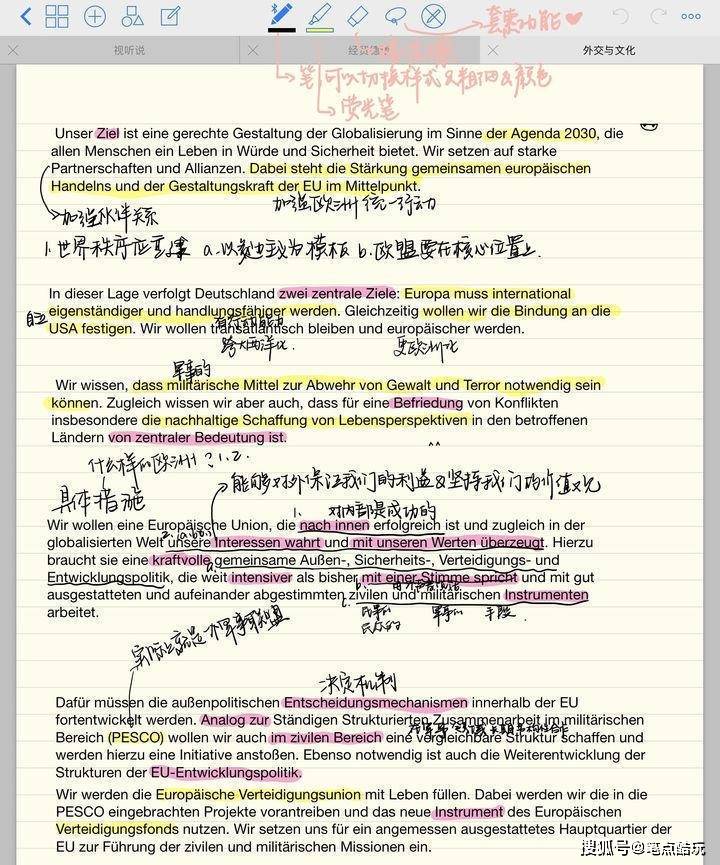 套索功能
视听说
外交与文化
笔,可以切换样式又粗细&颜色
荧光笔
Unser Ziel ist eine gerechte Gestaltung der Globalisierung im Sinne der Agenda 2030, die
allen Menschen ein Leben in Würde und Sicherheit bietet. Wir setzen auf starke
Partnerschaften und Allianzen. Dabei steht die Stärkung gemeinsamen europäischen
Handelns und der Gestaltungskraft der EU im Mittelpunkt.
加强伙伴关系
加强欧洲统一行动
1. 世界秩序应 a. 以 为模板 b. 欧盟要在核心位置上
In dieser Lage verfolgt Deutschland zwei zentrale Ziele: Europa muss international
eigenständiger und handlungsfähiger werden. Gleichzeitig wollen wir die Bindung an die
有行动能力
USA festigen. Wir wollen transatlantisch bleiben und europäischer werden.
跨大西洋化
更欧洲化
军事的
Wir wissen, dass militärische Mittel zur Abwehr von Gewalt und Terror notwendig sein
können. Zugleich wissen wir aber auch, dass für eine Befriedung von Konflikten
insbesondere die nachhaltige Schaffung von Lebensperspektiven in den betroffenen
Ländern von zentraler Bedeutung ist.
什么样的欧洲?1.2.
具体措施
能够对外保证我们的利益&坚持我们的价值观
1. 对内部是成功的
Wir wollen eine Europäische Union, die nach innen erfolgreich ist und zugleich in der
globalisierten Welt unsere Interessen wahrt und mit unseren Werten überzeugt. Hierzu
braucht sie eine kraftvolle gemeinsame Außen-, Sicherheits-, Verteidigungs- und
Entwicklungspolitik, die weit intensiver als bisher mit einer Stimme spricht und mit gut
ausgestatteten und aufeinander abgestimmten zivilen und militärischen Instrumenten
arbeitet.
军事的
手段
实际上就是个军事联盟
决定机制
Dafür müssen die außenpolitischen Entscheidungsmechanismen innerhalb der EU
fortentwickelt werden. Analog zur Ständigen Strukturierten Zusammenarbeit im militärischen
Bereich (PESCO) wollen wir auch im zivilen Bereich eine vergleichbare Struktur schaffen und
werden hierzu eine Initiative anstoßen. Ebenso notwendig ist auch die Weiterentwicklung der
Strukturen der EU-Entwicklungspolitik.
Wir werden die Europäische Verteidigungsunion mit Leben füllen. Dabei werden wir die in die
PESCO eingebrachten Projekte vorantreiben und das neue Instrument des Europäischen
Verteidigungsfonds nutzen. Wir setzen uns für ein angemessen ausgestattetes Hauptquartier der
EU zur Führung der zivilen und militärischen Missionen ein.
搜狐号@笔点酷玩